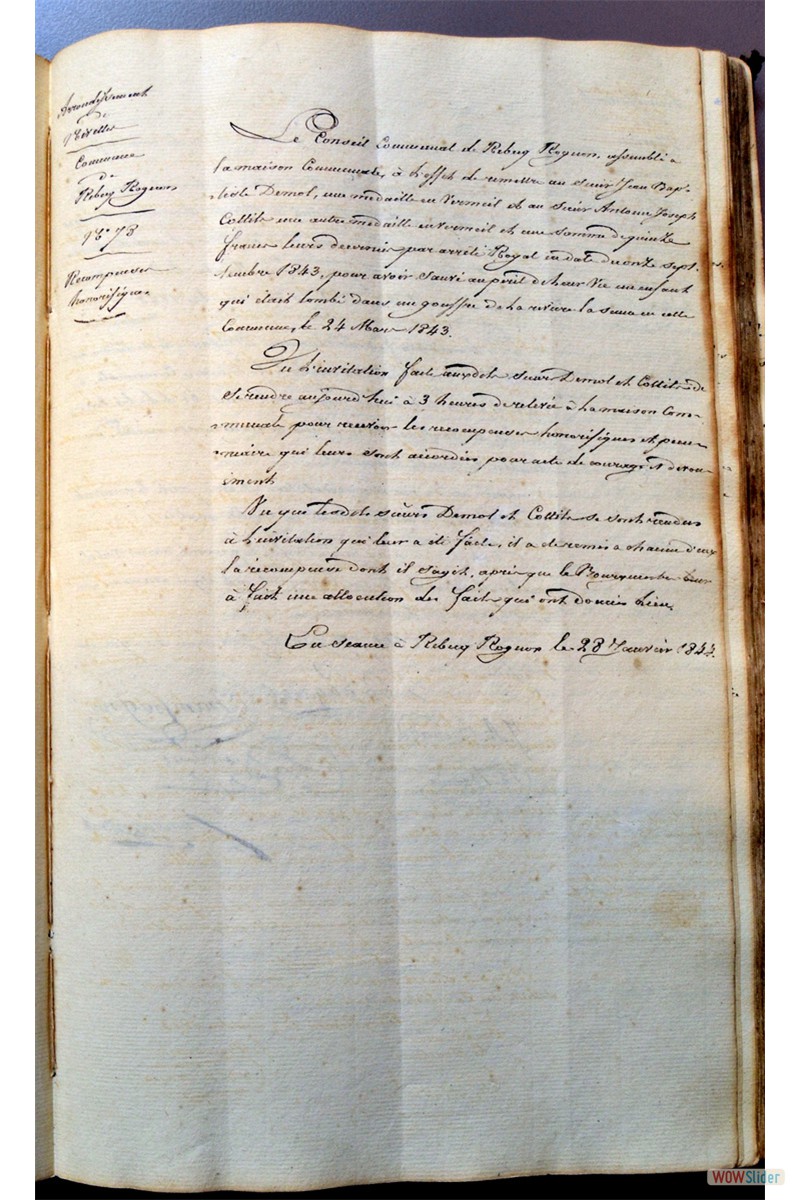 Arrondissement
de
Nivelles
Commune
de
Rebecq Rognon
N° 73
Recompenses
honorifiques
Le Conseil Communal de Rebecq Rognon, assemblé a
la maison Communale, à l'effet de remettre au sieur Jean Bap-
tiste Demol, une medaille en Vermeil et au Sieur Antoine Joseph
Collits une autre medaille en vermeil et une somme de quinze
francs leurs decernés par arrêté Royal en date du onze sept-
tembre 1843, pour avoir sauvé au peril de leur Vie un enfant
qui était tombé dans un gouffre de la riviere la senne en cette
Commune, le 24 Mars 1843.
Vu l'invitation faite auxdits sieurs Demol et Collits de
se rendre aujourd'hui à 3 heures de relevée à la maison Com-
munale pour recevoir les recompenses honorifiques et pecu-
niaire qui leurs sont accordées pour acte de courage et devou-
ement
Vu que lesdits sieurs Demol et Collits se sont rendus
à l'invitation qui leur a été faite, il a de remis a chacun d'eux
la récompense dont il s'agit, après que le Bourgmestre leur
à fait une allocution des faits qui ont donnés lieu.
En seance à Rebecq Rognon le 28 Janvier 1844.
WOWSlider